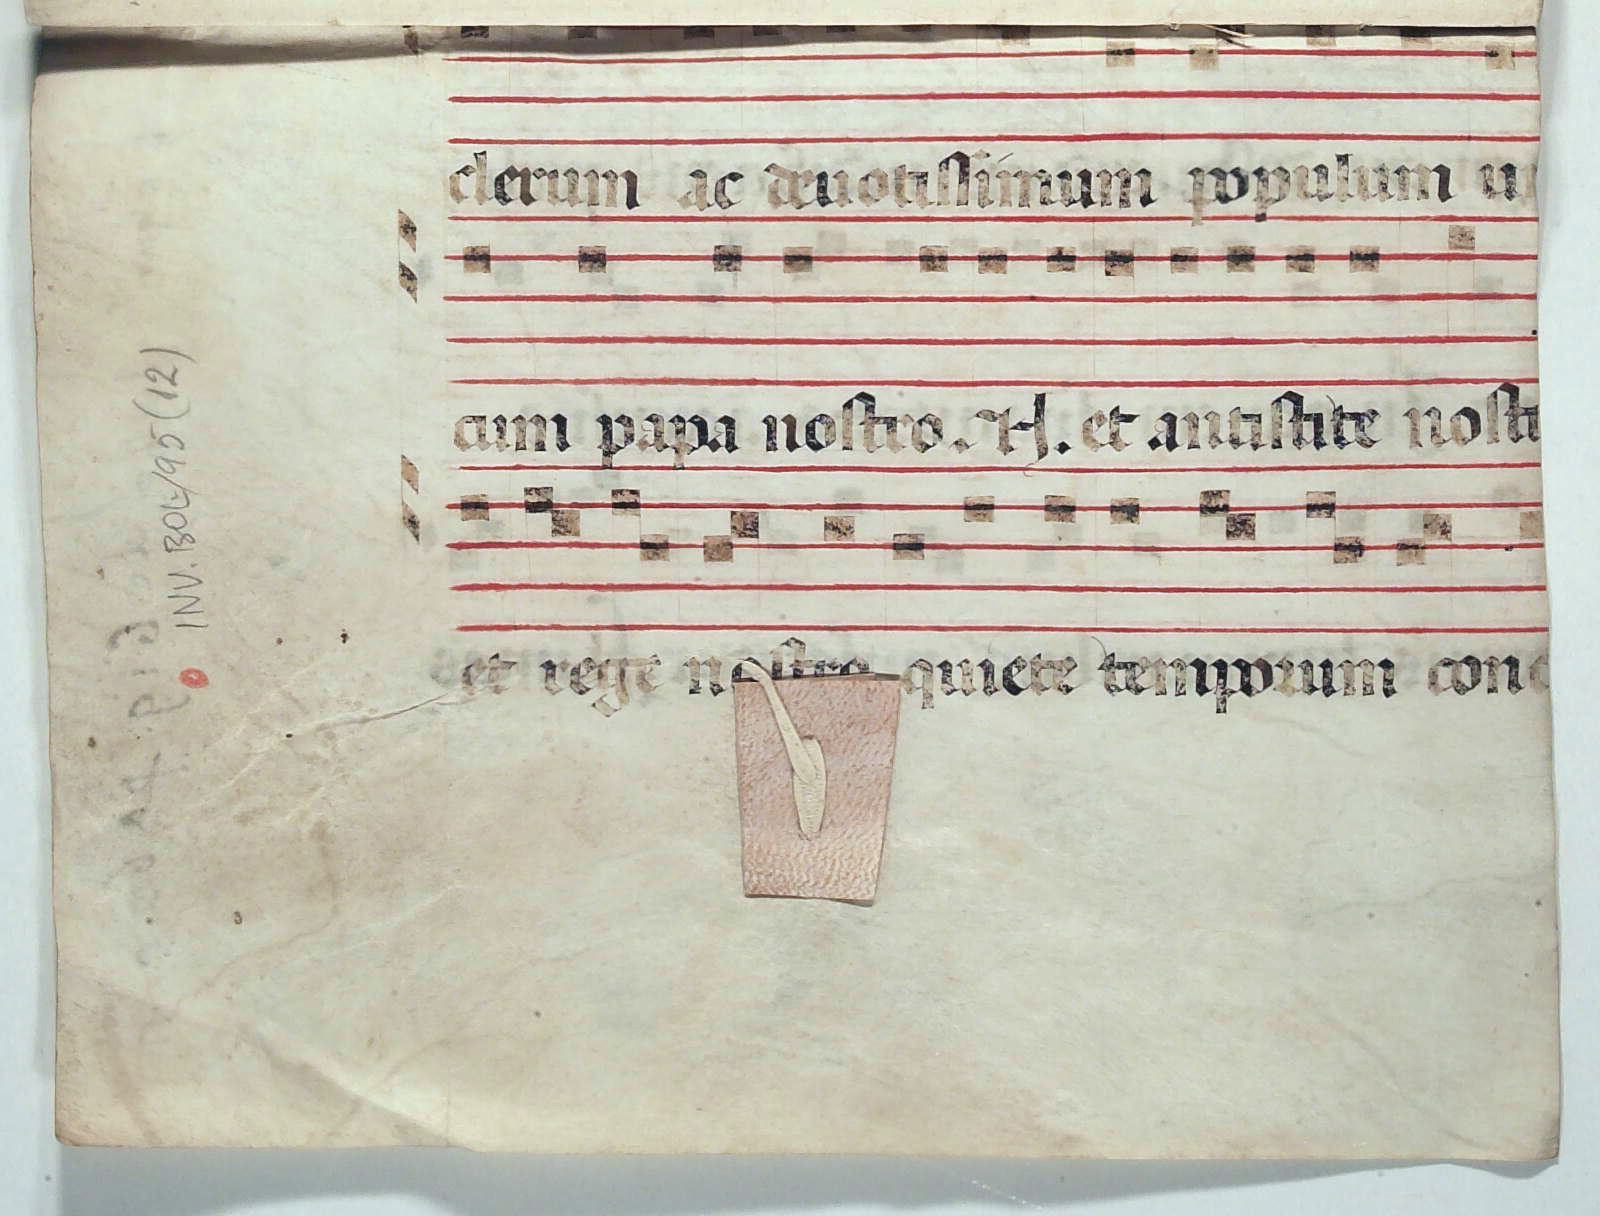 clerum ac deuotissimum populum
cum papa nostro. N. et antistite nost
et rege nostro quiete temporum conc
INV. BOL/95(12)